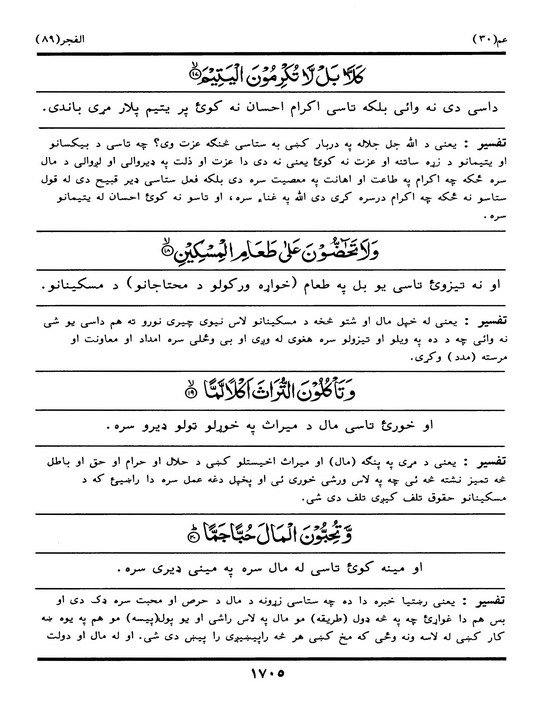 عم(٣٠) الفجر(٨٩)
كَلَّا بَلْ لَّا تُكْرِمُوْنَ الْيَتِيْمَ ۙ﴿١٧﴾
داسې دی نه وائی بلکه تاسې اکرام احسان نه کوئ پر یتیم پلار مړی باندی.
تفسیر : یعنی د الله جل جلاله په دربار کښې به ستاسې څنګه عزت وی؟ چه تاسې د بیکسانو
او یتیمانو د زړه ساتنه او عزت نه کوئ یعنی نه دی دا عزت او ذلت په ډیروالی او لږوالی د مال
سره ځکه چه اکرام په طاعت او اهانت په معصیت سره دی بلکه فعل ستاسې ډیر قبیح دی له قول
ستاسو نه ځکه چه اکرام درسره کړی دی الله په غناء سره، او تاسو نه کوئ احسان له یتیمانو
سره.
وَلَا تَحٰٓضُّوْنَ عَلٰى طَعَامِ الْمِسْكِيْنِ ۙ﴿١٨﴾
او نه تیزوئ تاسې یو بل په طعام (خواړه ورکولو د محتاجانو) د مسکینانو.
تفسیر : یعنی له خپل مال او شتو څخه د مسکینانو لاس نیوی چیری نورو ته هم داسې یو شی
نه وائی چه د ده په ویلو او تیزولو سره هغوی له وږی او بی وځلی سره امداد او معاونت او
مرسته (مدد) وکړی.
وَتَاْكُلُوْنَ التُّرَاثَ اَكْلًا لَّمًّا ۙ﴿١٩﴾
او خورئ تاسې مال د میراث په خوړلو ټولو ډیرو سره.
تفسیر : یعنی د مړی په پنګه (مال) او میراث اخیستلو کښې د حلال او حرام او حق او باطل
څه تمیز نشته څه ئی چه په لاس ورشی خوری ئی او پخپل دغه عمل سره دا راښیئ که د
مسکینانو حقوق تلف کیږی تلف دی شی.
وَّتُحِبُّوْنَ الْمَالَ حُبًّا جَمًّا ﴿٢٠﴾
او مینه کوئ تاسې له مال سره په مینې ډیری سره.
تفسیر : یعنی رښتیا خبره دا ده چه ستاسې زړونه د مال د حرص او محبت سره ډک دی او
بس هم دا غواړئ چه په څه ډول (طریقه) مو مال په لاس راشی او یو پول(پیسه) مو هم په یوه ښه
کار کښې له لاسه ونه وځی که مخ کښې هر څه راپیښیږی را پیښ دی شی. او له مال او دولت
١٧٠٥